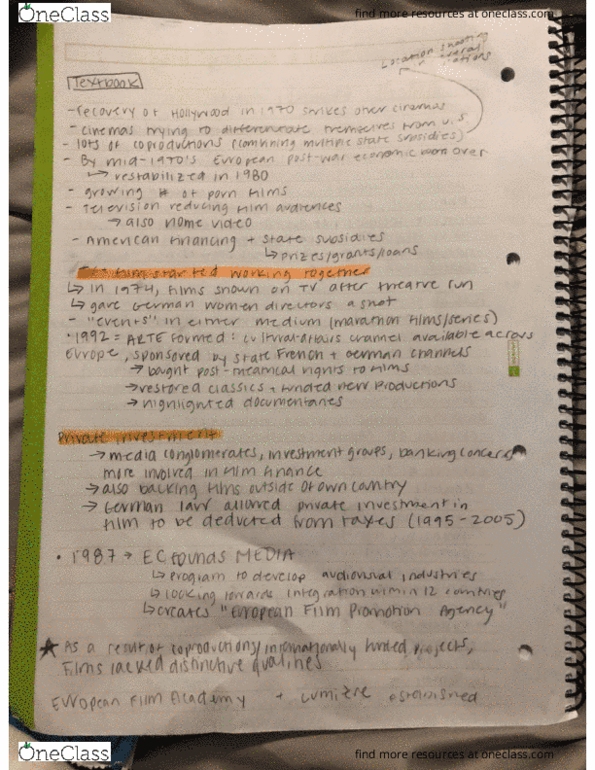 OneClass
find more resources at oneclass.com
Location shooting
in several
locations
Textbook
- recovery of Hollywood in 1970 strikes other cinemas
- cinemas trying to differentiate themselves from U.S
- lots of coproductions (combining multiple state subsidies)
- By mid-1970's European post-war economic boom over
↳ restabilized in 1980
- growing # of porn films
- Television reducing film audiences
→ also home video
- American financing + state subsidies
↳ prizes/grants/loans
film started working together
↳ in 1974, films shown on TV after theatre run
↳ gave German women directors a shot
- "events" in either medium (marathon films/series)
• 1992 = ARTE formed: cultural-affairs channel available across
Europe, sponsored by state French + German channels
→ bought post-theatrical rights to films
→ restored classics + funded new productions
→ highlighted documentaries
Private investment
→ media conglomerates, investment groups, banking concerns
more involved in film finance
→ also backing films outside of own country
→ German law allowed private investment in
film to be deducted from taxes (1995-2005)
• 1987 → EC founds MEDIA
↳ Program to develop audiovisual industries
↳ looking towards integration within 12 countries
↳ creates "European Film Promotion Agency"
★ As a result of coproductions/internationally funded projects,
films lacked distinctive qualities
European Film Academy + Lumière established
OneClass
find more resources at oneclass.com